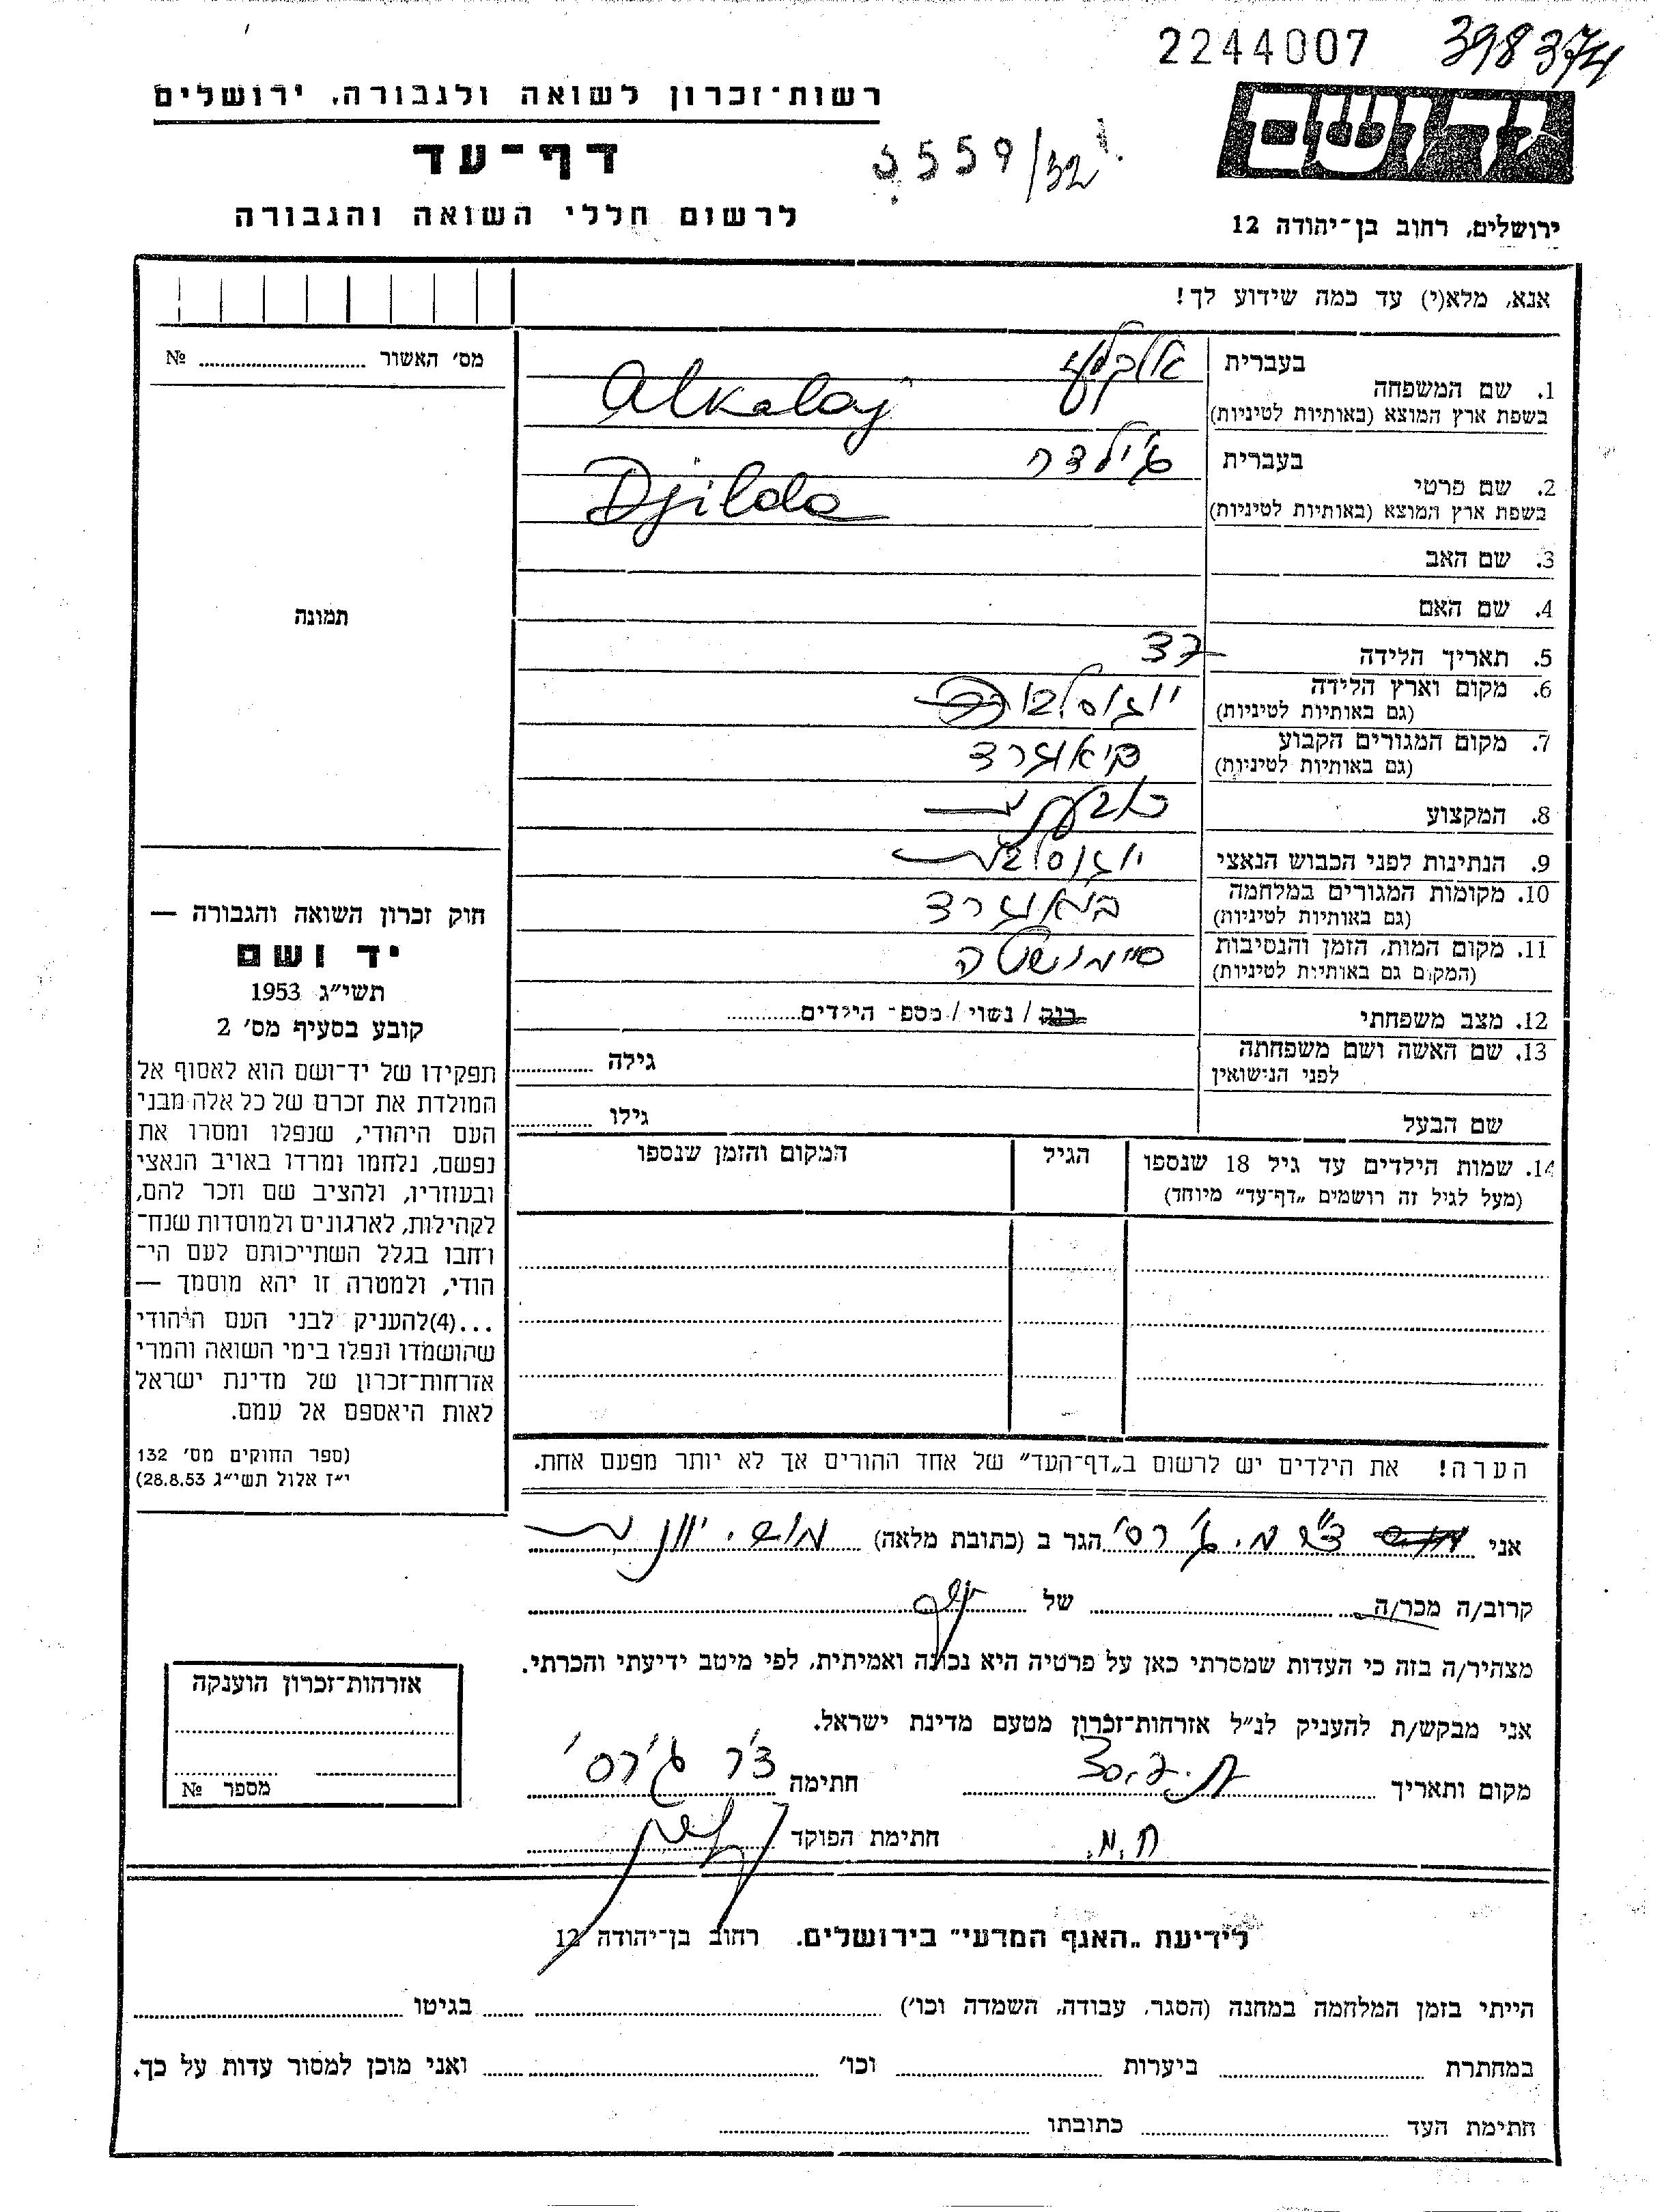 2244007 398374
רשות־זכרון לשואה ולגבורה, ירושלים
יד ושם
דף־עד
5559/32
לרשום חללי השואה והגבורה
ירושלים, רחוב בן־יהודה 12
אנא, מלא(י) עד כמה שידוע לך!
מס׳ האשור № 
תמונה
1. שם המשפחה
בעברית אלקלעי
בשפת ארץ המוצא (באותיות לטיניות) Alkalaj
2. שם פרטי
בעברית ג׳ילדה
בשפת ארץ המוצא (באותיות לטיניות) Djilda
3. שם האב
4. שם האם
5. תאריך הלידה 37
6. מקום וארץ הלידה יוגוסלביה
(גם באותיות לטיניות)
7. מקום המגורים הקבוע ביאוגרד
(גם באותיות לטיניות)
8. המקצוע
9. הנתינות לפני הכבוש הנאצי יוגוסלבית
10. מקומות המגורים במלחמה ביאוגרד
(גם באותיות לטיניות)
11. מקום המות, הזמן והנסיבות סיימושטה
(המקום גם באותיות לטיניות)
12. מצב משפחתי רוק / נשוי / מספר הילדים
13. שם האשה ושם משפחתה גילה
לפני הנישואין
שם הבעל גילו
14. שמות הילדים עד גיל 18 שנספו הגיל המקום והזמן שנספו
(מעל לגיל זה רושמים „דף־עד״ מיוחד)
חוק זכרון השואה והגבורה —
יד ושם
תשי״ג 1953
קובע בסעיף מס׳ 2
תפקידו של יד־ושם הוא לאסוף אל
המולדת את זכרם של כל אלה מבני
העם היהודי, שנפלו ומסרו את
נפשם, נלחמו ומרדו באויב הנאצי
ובעוזריו, ולהציב שם וזכר להם,
לקהילות, לארגונים ולמוסדות שנח־
רבו בגלל השתייכותם לעם הי־
הודי, ולמטרה זו יהא מוסמך —
...(4)להעניק לבני העם היהודי
שהושמדו ונפלו בימי השואה והמרי
אזרחות־זכרון של מדינת ישראל
לאות היאספם אל עמם.
(ספר החוקים מס׳ 132
י״ז אלול תשי״ג 28.8.53)
הערה! את הילדים יש לרשום ב„דף־העד״ של אחד ההורים אך לא יותר מפעם אחת.
אני הגר ב (כתובת מלאה)
קרוב/ה מכר/ה של
מצהיר/ה בזה כי העדות שמסרתי כאן על פרטיה היא נכונה ואמיתית, לפי מיטב ידיעתי והכרתי.
אני מבקש/ת להעניק לנ״ל אזרחות־זכרון מטעם מדינת ישראל.
מקום ותאריך חתימה
ח.מ. חתימת הפוקד
אזרחות־זכרון הוענקה
מספר №
לידיעת „האגף המדעי״ בירושלים. רחוב בן־יהודה 12
הייתי בזמן המלחמה במחנה (הסגר, עבודה, השמדה וכו׳) בגיטו
במחתרת ביערות וכו׳ ואני מוכן למסור עדות על כך.
חתימת העד כתובתו